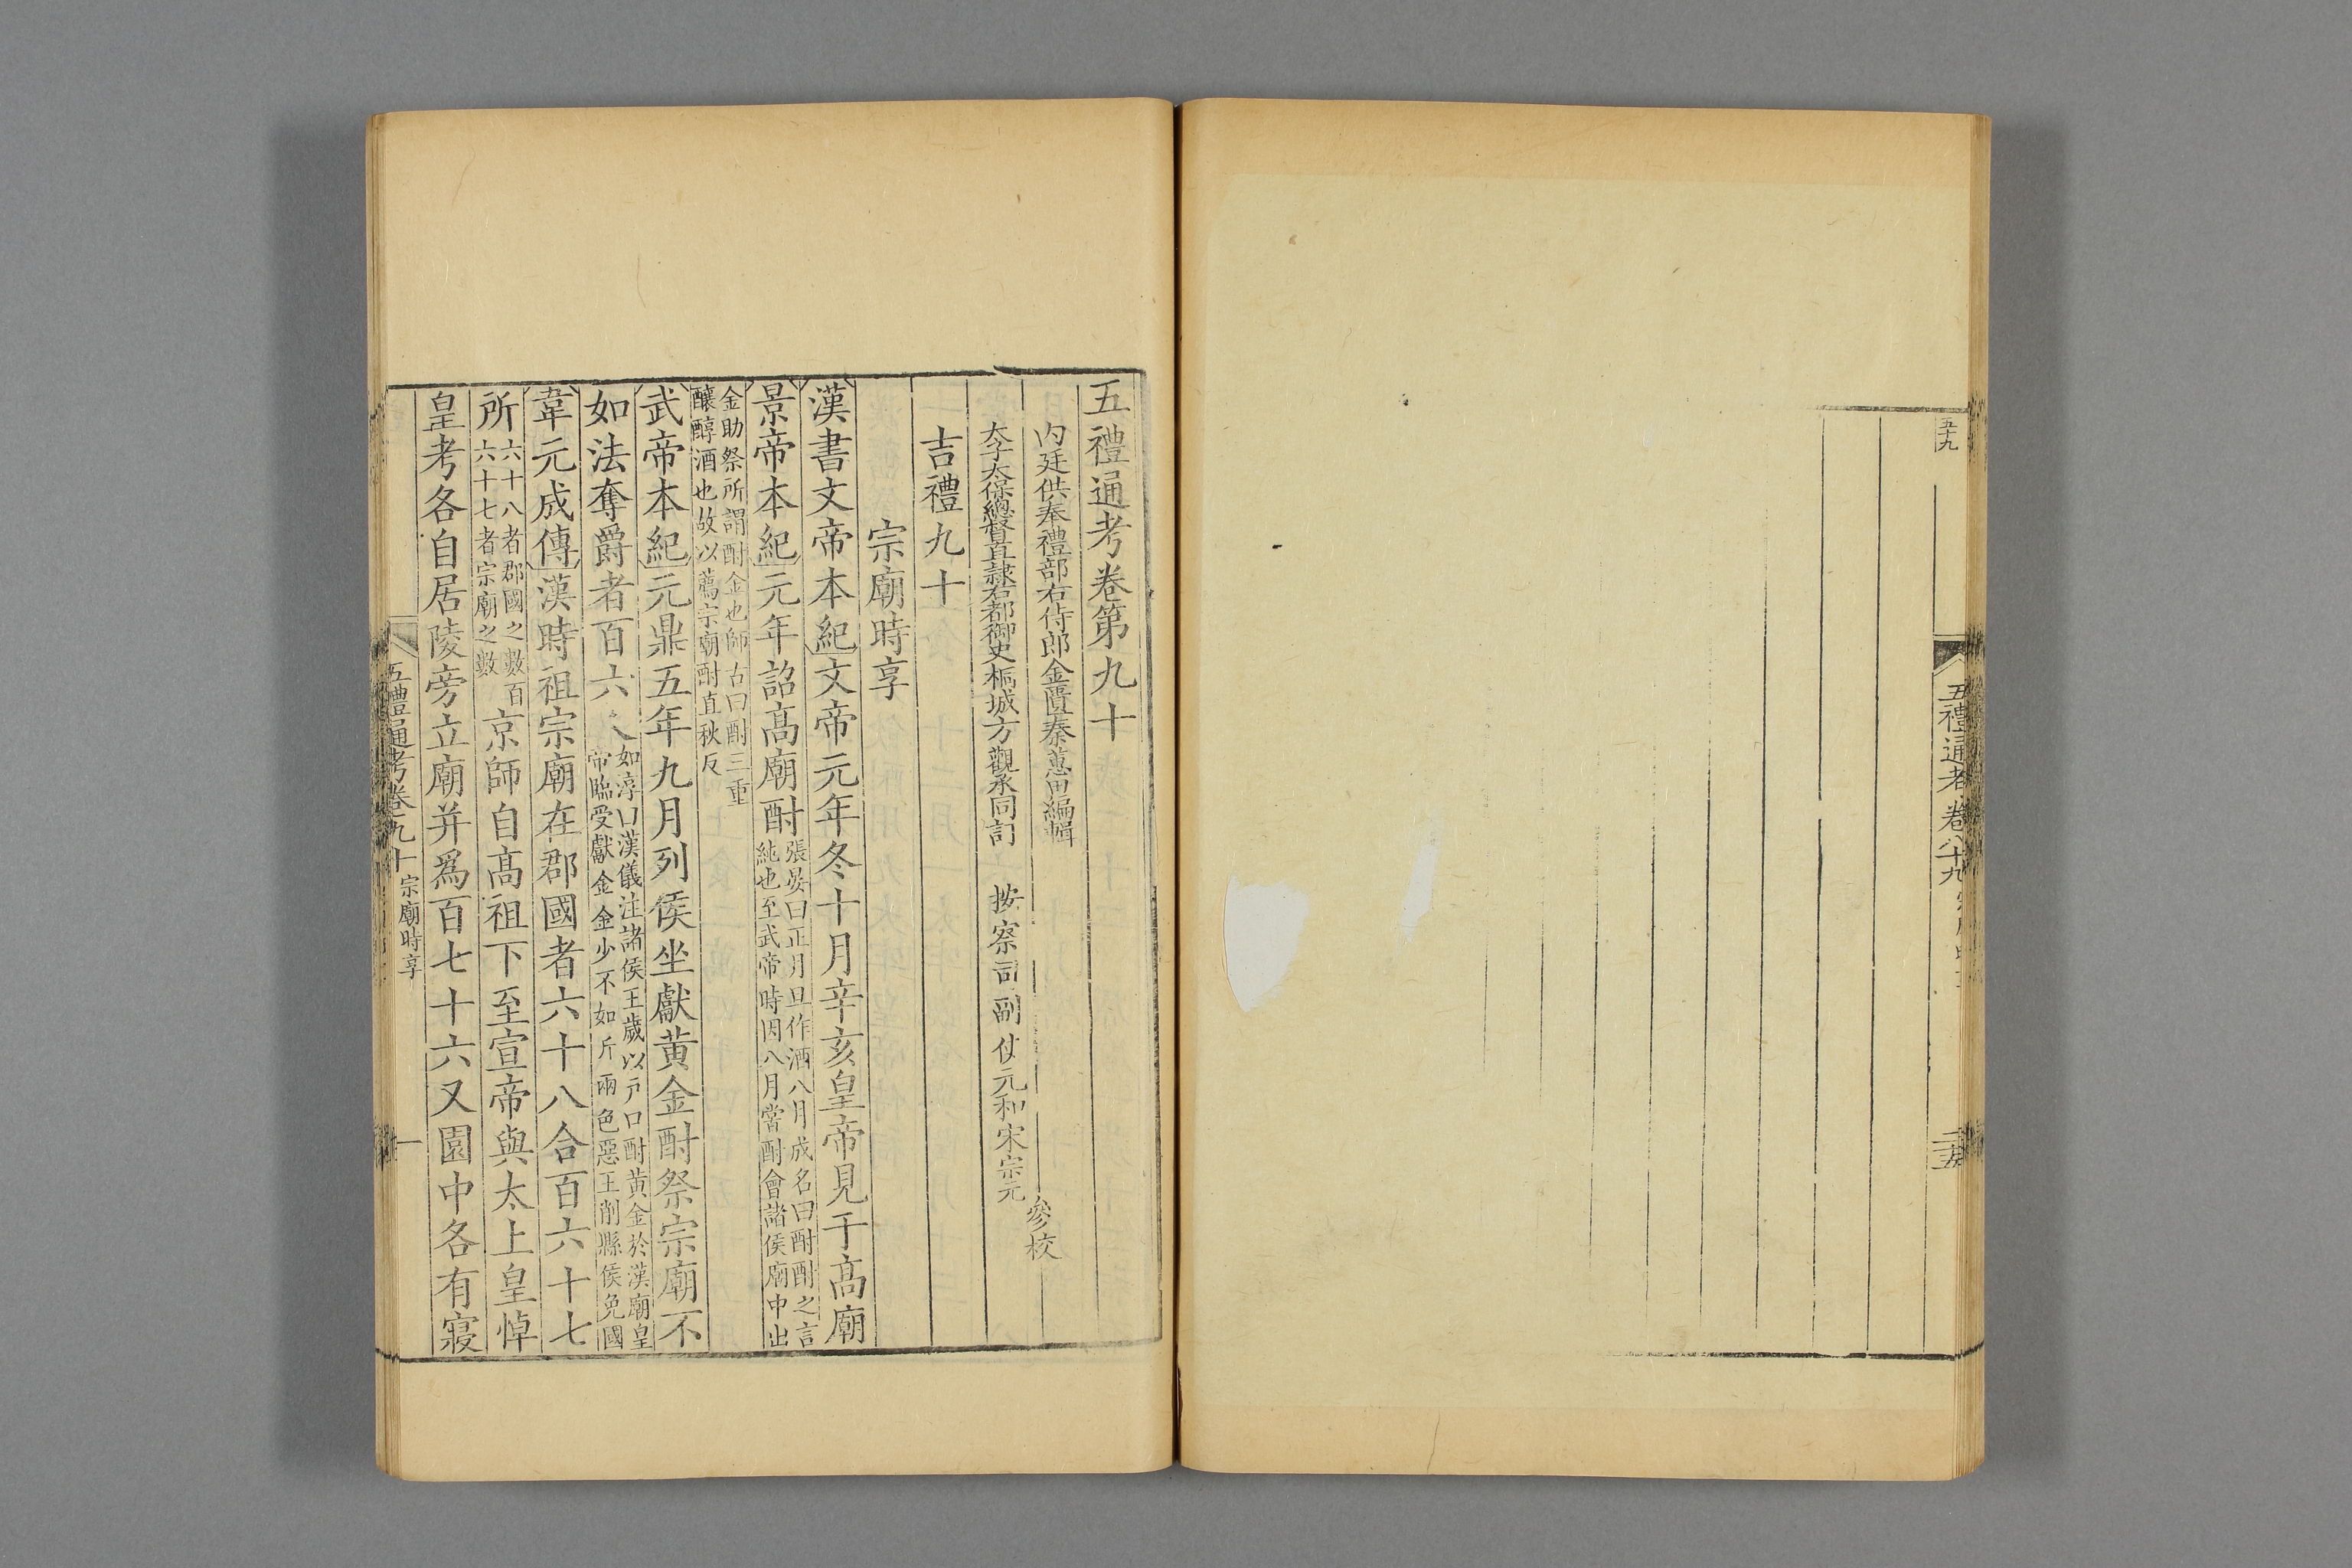 五十九
五禮通考卷八十九
二五
五禮通考卷第九十
內廷供奉禮部右侍郎金匱秦蕙田編輯
太子太保總督直隸右都御史桐城方觀承同訂
按察司副使元和宋宗元
參校
吉禮九十
宗廟時享
漢書文帝本紀文帝元年冬十月辛亥皇帝見于高廟
景帝本紀元年詔高廟酎
張晏曰正月旦作酒八月成名曰酎酎之言
純也至武帝時因八月嘗酎會諸侯廟中出
金助祭所謂酎金也師古曰酎三重
釀醇酒也故以薦宗廟酎直秋反
武帝本紀元鼎五年九月列侯坐獻黃金酎祭宗廟不
如法奪爵者百六人
如淳曰漢儀注諸侯王歲以戶口酎黃金於漢廟皇
帝臨受獻金金少不如斤兩色惡王削縣侯免國
韋元成傳漢時祖宗廟在郡國者六十八合百六十七
所
六十八者郡國之數百
六十七者宗廟之數
京師自高祖下至宣帝與太上皇悼
皇考各自居陵旁立廟并爲百七十六又園中各有寢
五禮通考卷九十
宗廟時享
一